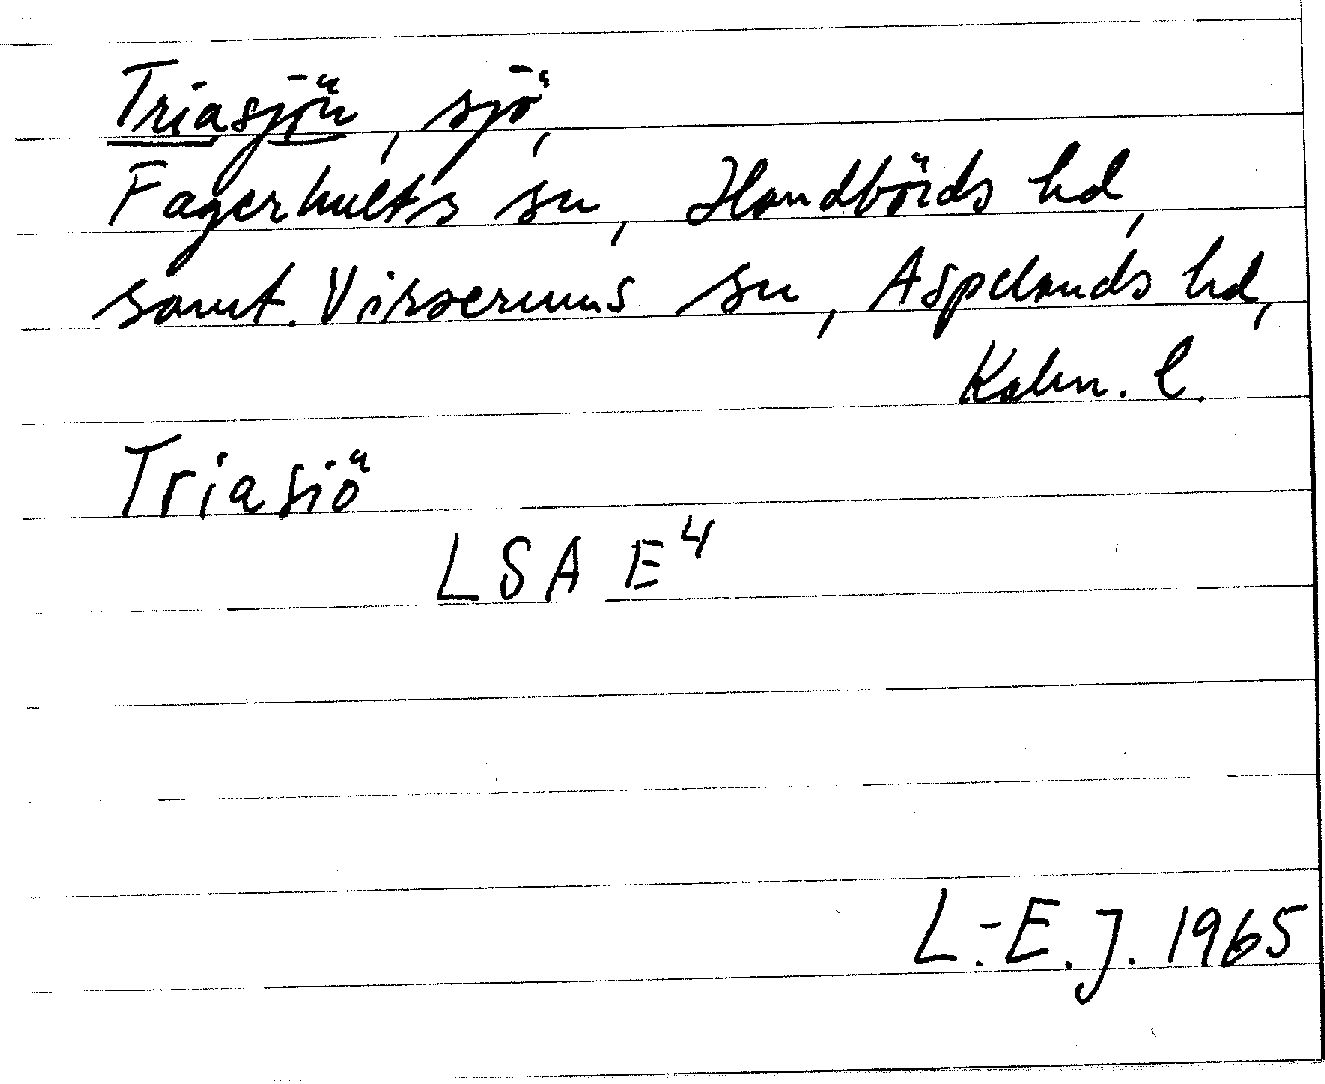 Triasjön, sjö,
Fagerhults sn, Handbörds hd,
samt. Virserums sn, Aspelands hd,
Kalm. l.
Triasiö
LSA E4
L.-E.J. 1965